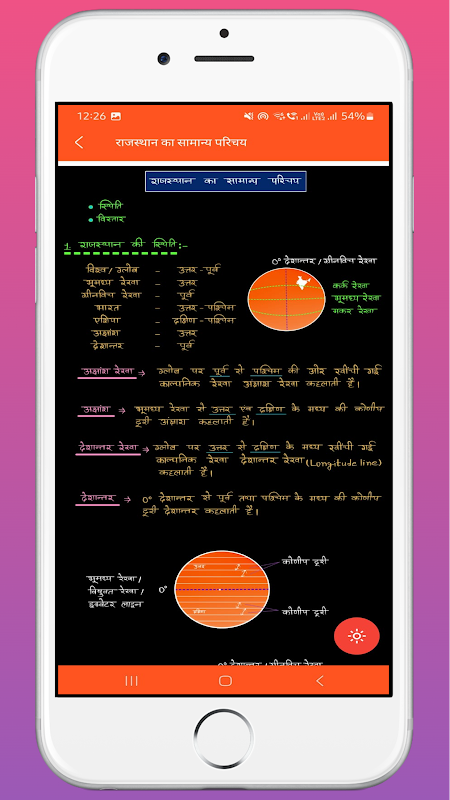 12:26 54%
राजस्थान का सामान्य परिचय
राजस्थान का सामान्य परिचय
स्थिति
विस्तार
1 राजस्थान की स्थिति :-
विश्व / ग्लोब – उत्तर-पूर्व
भूमध्य रेखा – उत्तर
ग्रीनविच रेखा – पूर्व
भारत – उत्तर-पश्चिम
एशिया – दक्षिण-पश्चिम
अक्षांश – उत्तर
देशान्तर – पूर्व
0° देशान्तर / ग्रीनविच रेखा
कर्क रेखा
भूमध्य रेखा
मकर रेखा
अक्षांश रेखा → ग्लोब पर पूर्व से पश्चिम की ओर खींची गई
काल्पनिक रेखा अक्षांश रेखा कहलाती है।
अक्षांश → भूमध्य रेखा से उत्तर एवं दक्षिण के मध्य की कोणीय
दूरी अक्षांश कहलाती है।
देशान्तर रेखा → ग्लोब पर उत्तर से दक्षिण के मध्य खींची गई
काल्पनिक रेखा देशान्तर रेखा (Longitude line)
कहलाती है।
देशान्तर → 0° देशान्तर से पूर्व तथा पश्चिम के मध्य की कोणीय
दूरी देशान्तर कहलाती है।
भूमध्य रेखा /
विषुवत रेखा /
इक्वेटर लाइन
0°
कोणीय दूरी
कोणीय दूरी
0° देशान्तर / ग्रीनविच रेखा